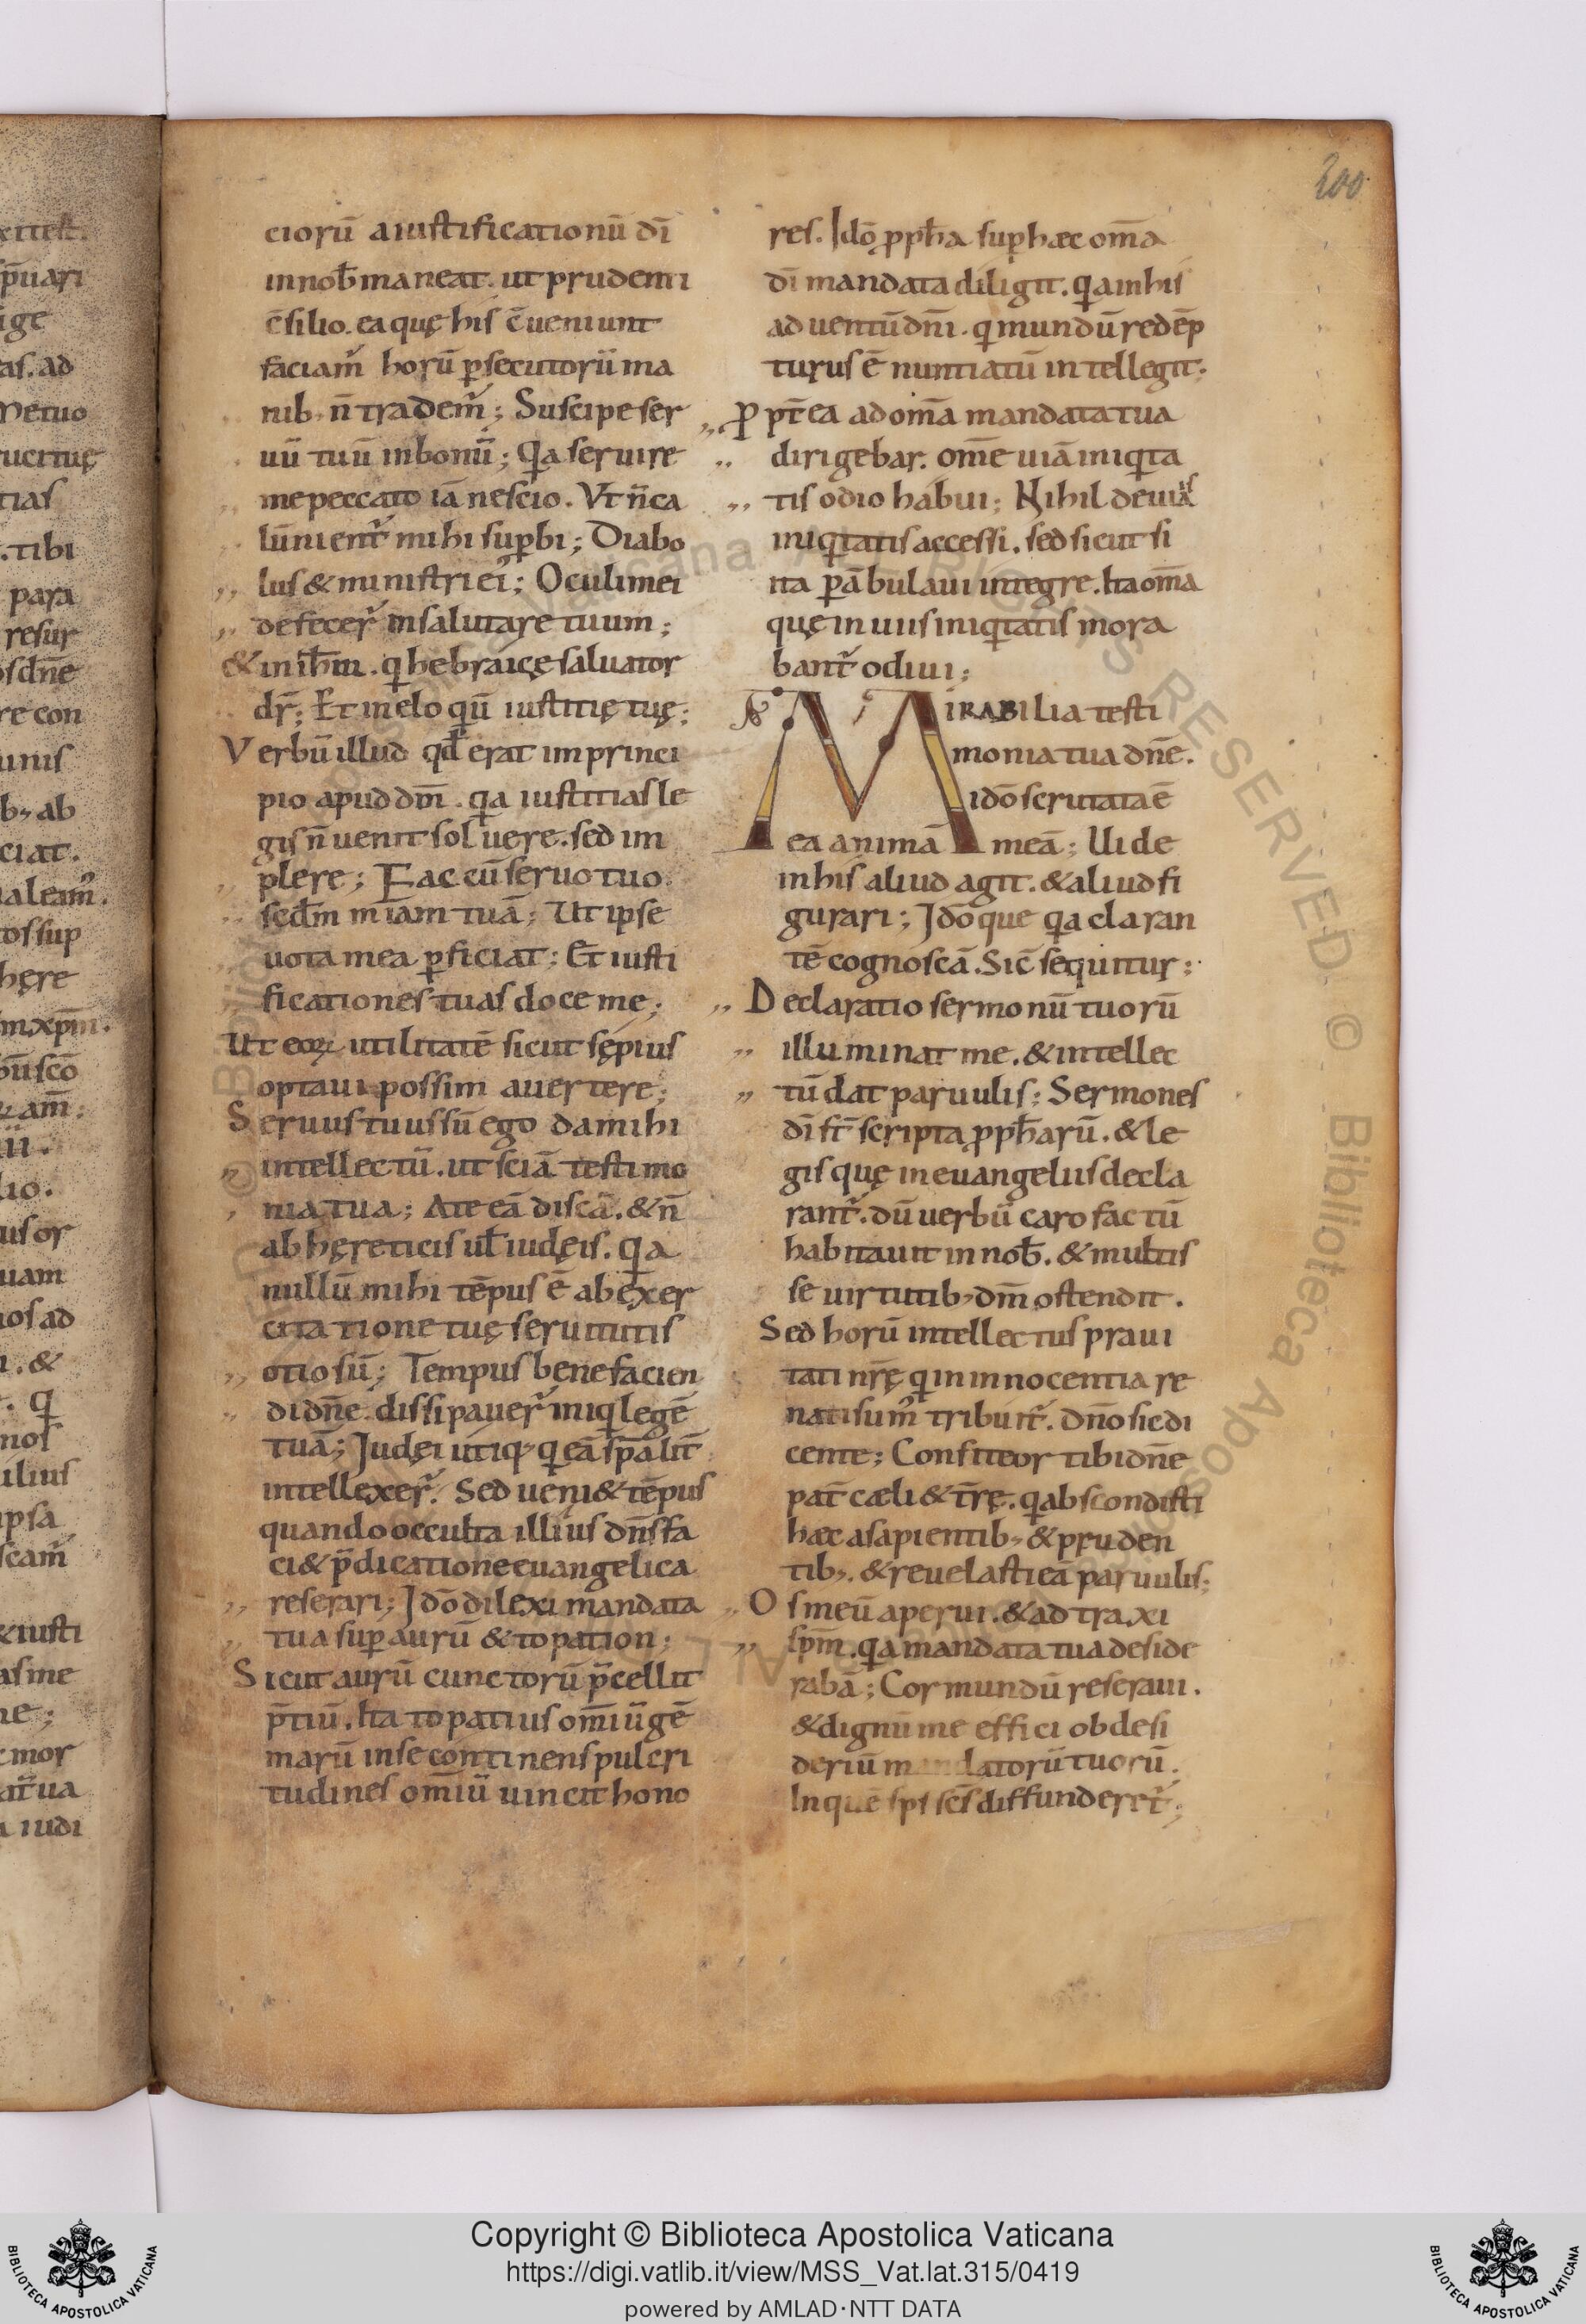 200
ciorū aiustificationū dī
innob̄ maneat. ut prudenti
c̄silio. ea quę his c̄ueniunt
faciam᷒ horū ꝑsecutorū ma
nib; n̄ tradem᷒; Suscipe ser
uū tuū inbonū; Qa seruire
me peccato iā nescio. Vt n̄ ca
lūnient᷒ mihi suꝑbi; Diabo
lus & ministri ei᷒; Oculi mei
defecer᷒ in salutare tuum;
& in ih̄m. q hebraicę saluator
dr̄; Et in eloqū iustitię tuę;
Verbū illud qđ erat im princi
pio apud dm̄. qa iustitias le
gis n̄ uenit soluere. sed im
plere; Fac cū seruo tuo
scdm̄ miam tuā; Ut ipse
uota mea ꝑficiat; Et iusti
ficationes tuas doce me;
Ut eoꝝ utilitatē sicut sępius
optaui possim auertere;
Seruus tuus sū ego da mihi
intellectū. ut sciā testimo
nia tua; Ate eā discā. & n̄
ab hęreticis ul̄ iudęis. qa
nullū mihi tēpus ē ab exer
citatione tuę seruitutis
otiosū; Tempus bene facien
di dn̄e. dissipauer᷒ iniq legē
tuā; Judęi utiq; q eā sp̄alit̄
intellexer᷒. Sed ueni& tēpus
quando occulta illius dn̄s fa
ci& p̄dicatione euangelica
reserari; Jdō dilexi mandata
tua suꝑ aurū & topation;
Sicut aurū cunctorū p̄cellit
p̄tiū. Ita topatius om̄iū gē
marū inse continens pulcri
tudines om̄iū uincit hono
res. Idō ꝓph̄a suꝑ hæc om̄a
dī mandata diligit. qa inhis
aduentū dn̄i. q mundū redēp
turus ē nuntiatū intellegit;
Ꝓpt̄ea ad om̄a mandata tua
dirigebar. om̄e uiā iniqta
tis odio habui; Nihil de uiis
iniqtatis accessi. sed sicut si
ita ꝑābulaui integre. Ita om̄a
quę in uiis iniqtatis mora
bant᷒ odiui;
MIRABilia testi
monia tua dn̄e.
idō scrutata ē
ea animā meā; Uide
inhis aliud agit. & aliud fi
gurari; Jdōque qa claran
tē cognoscā. Sic̄ sequitur;
Declaratio sermonū tuorū
illuminat me. & intellec
tū dat paruulis; Sermones
dī st̄ scripta ꝓph̄arū. & le
gis quę in euangeliis decla
rant᷒. dū uerbū caro factū
habitauit in nob̄. & multis
se uirtutib; dm̄ ostendit.
Sed horū intellectus praui
tati nr̄ę q in innocentia re
nati sum᷒ tribuit᷒. dn̄o sic di
cente; Confiteor tibi dn̄e
pat̄ cæli & t̄rę. q abscondisti
hæc a sapientib; & pruden
tib;. & reuelasti eā paruulis;
Os meū aperui. & adtraxi
sp̄m. qa mandata tua deside
rabā; Cor mundū reseraui.
& dignū me effici ob desi
deriū mandatorū tuorū.
In quē sp̄s sc̄s diffunderet᷒;
Copyright © Biblioteca Apostolica Vaticana
https://digi.vatlib.it/view/MSS_Vat.lat.315/0419
powered by AMLAD·NTT DATA
BIBLIOTECA APOSTOLICA VATICANA
BIBLIOTECA APOSTOLICA VATICANA